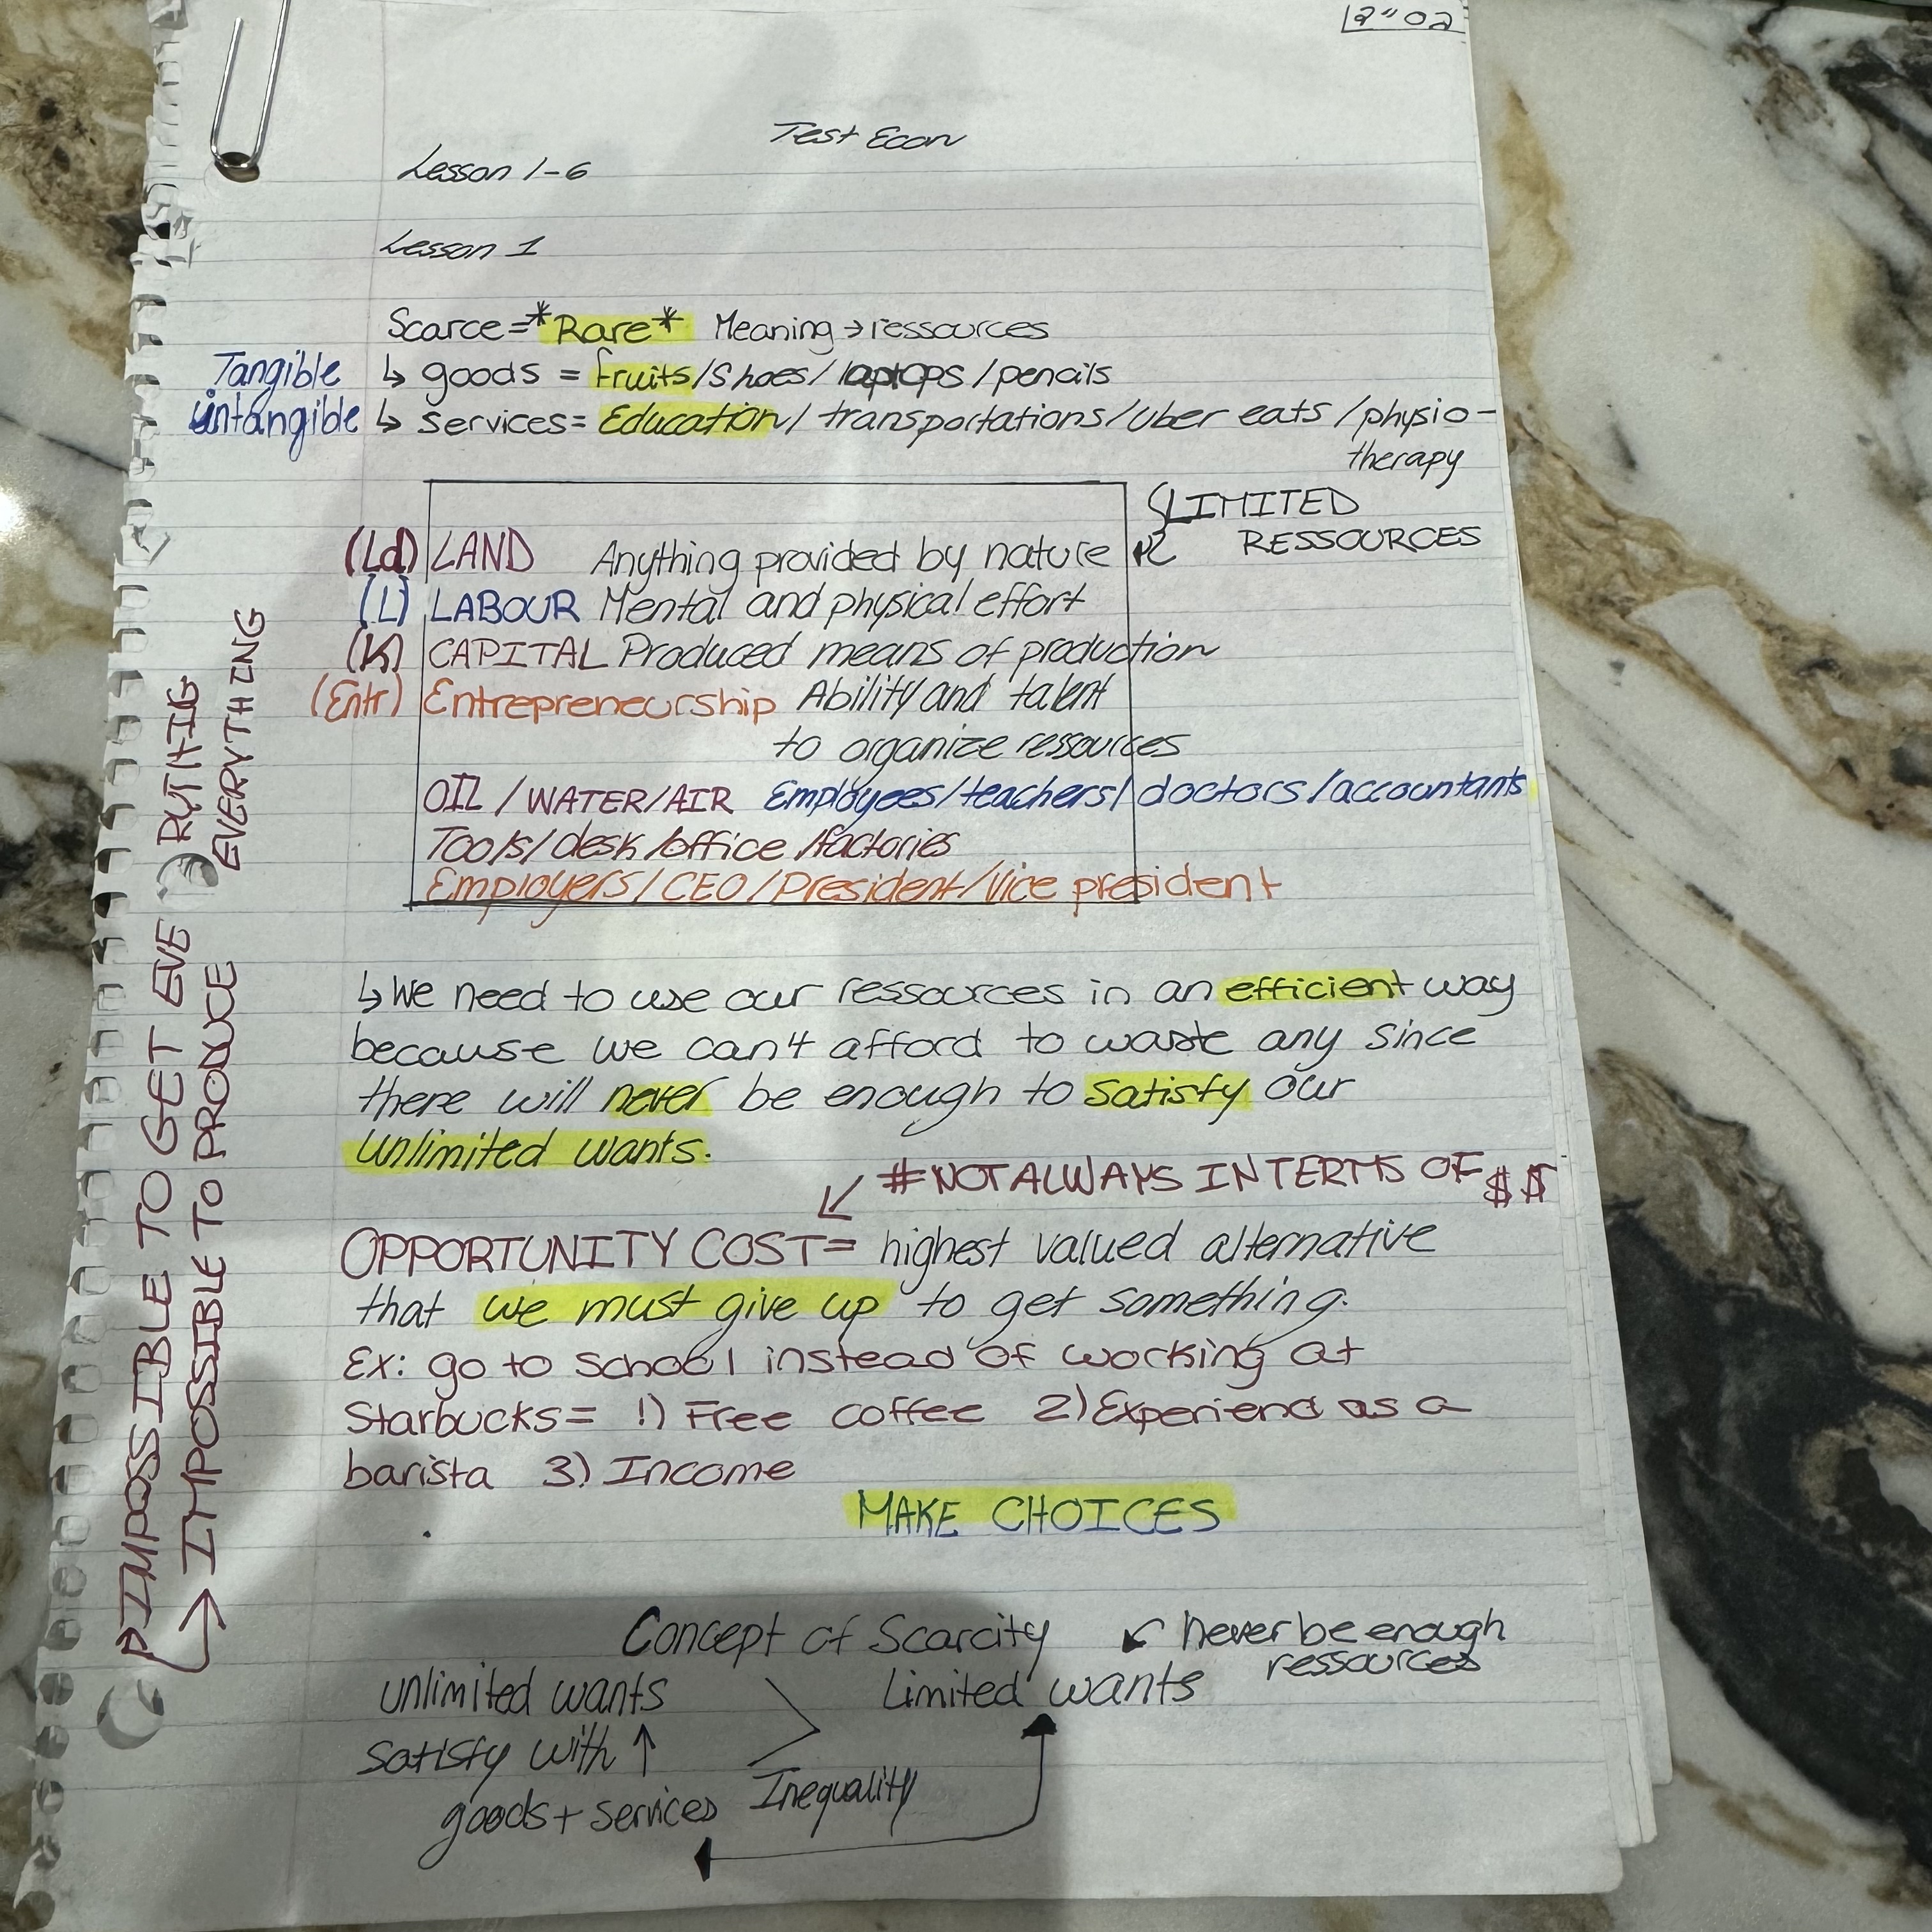 2"02
Test Econ
Lesson 1-6
Lesson 1
Scarce = *Rare* Meaning → ressources
Tangible ↳ goods = fruits/Shoes/laptops/pencils
untangible ↳ services = Education/transportations/Uber eats/physio-
therapy
LIMITED
RESSOURCES
(Ld) LAND Anything provided by nature
(L) LABOUR Mental and physical effort
(K) CAPITAL Produced means of production
(Entr) Entrepreneurship Ability and talent
to organize ressources
OIL/WATER/AIR Employees/teachers/doctors/accountants
Tools/desk/office/factories
Employers/CEO/President/Vice president
↳ We need to use our ressources in an efficient way
because we can't afford to waste any since
there will never be enough to satisfy our
Unlimited wants.
#NOT ALWAYS IN TERMS OF $$
OPPORTUNITY COST = highest valued alternative
that we must give up to get something.
Ex: go to school instead of working at
Starbucks = 1) Free coffee 2) Experiend as a
barista 3) Income
MAKE CHOICES
Concept of Scarcity ↙ Never be enough
ressources
unlimited wants > Limited wants
satisfy with ↑
goods + services Inequality
IMPOSSIBLE TO GET EVE RYTHIG
→ IMPOSSIBLE TO PRODUCE EVERYTHING